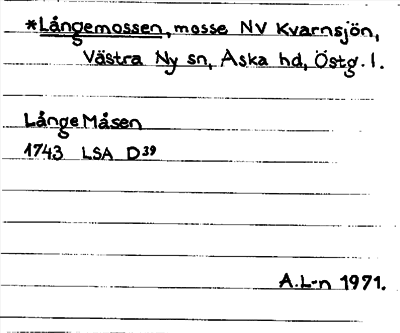 *Långemossen, mosse NV Kvarnsjön,
Västra Ny sn, Aska hd, Östg. l.
Långe Måsen
1743 LSA D39
A.L-n 1971.